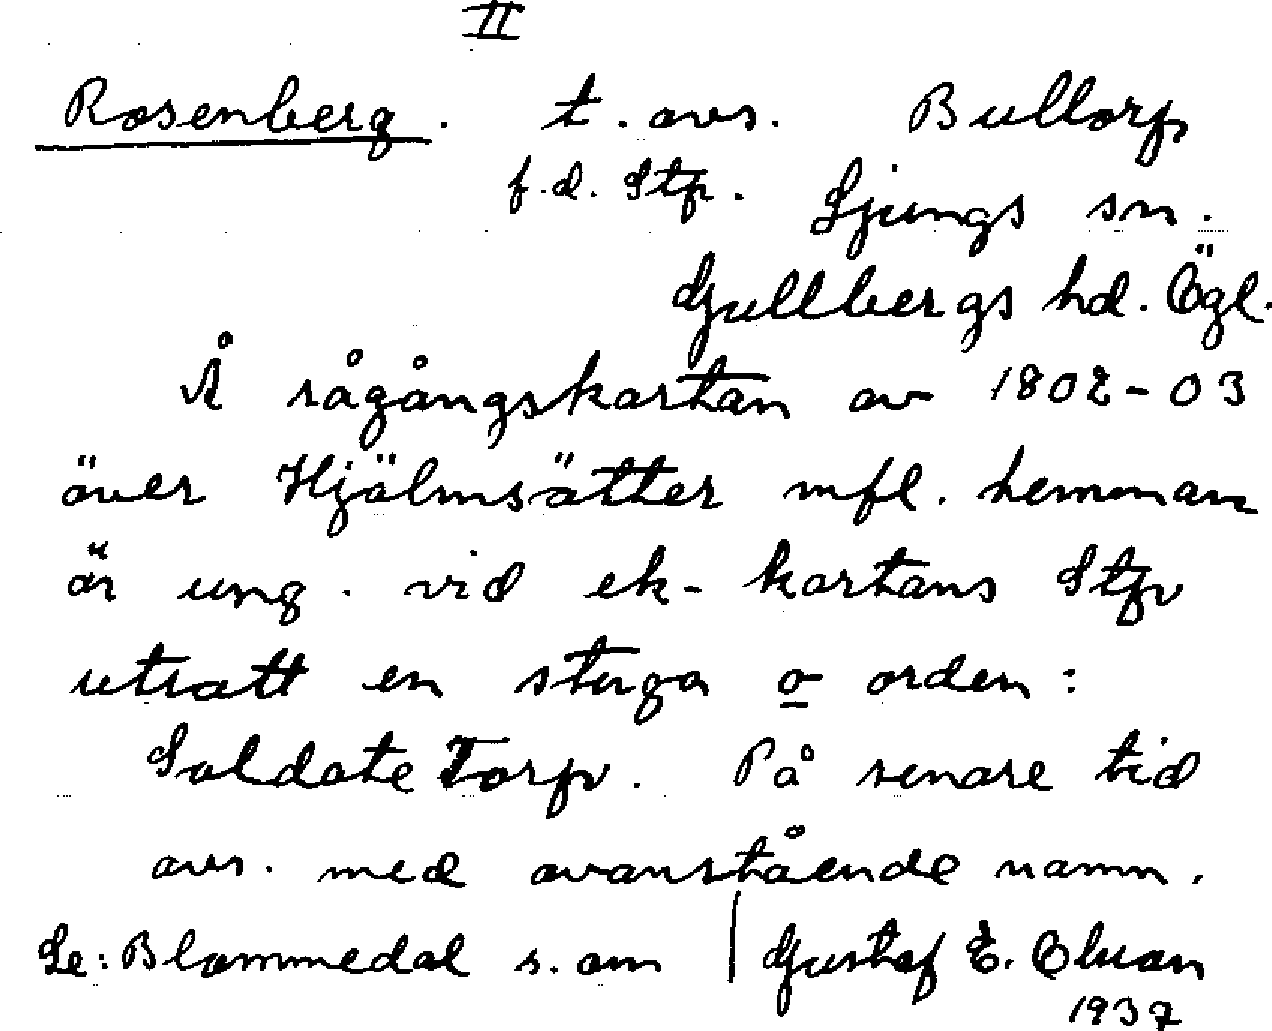 II
Rosenberg. t. avs. Bullorp
f.d. Stp. Ljungs sn.
Gullbergs hd. Ögl.
Å rågångskartan av 1802-03
över Hjälmsätter mfl. hemman
är ung. vid ek-kartans Stp
utsatt en stuga o orden:
SoldateTorp. På senare tid
avs. med ovanstående namn.
Se: Blommedal s. om | Gustaf E.
1937